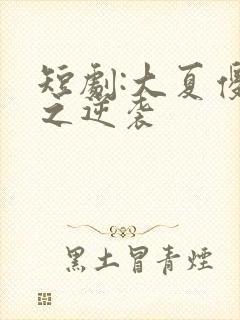 短劇:大夏優
之逆袭
黑土冒青煙